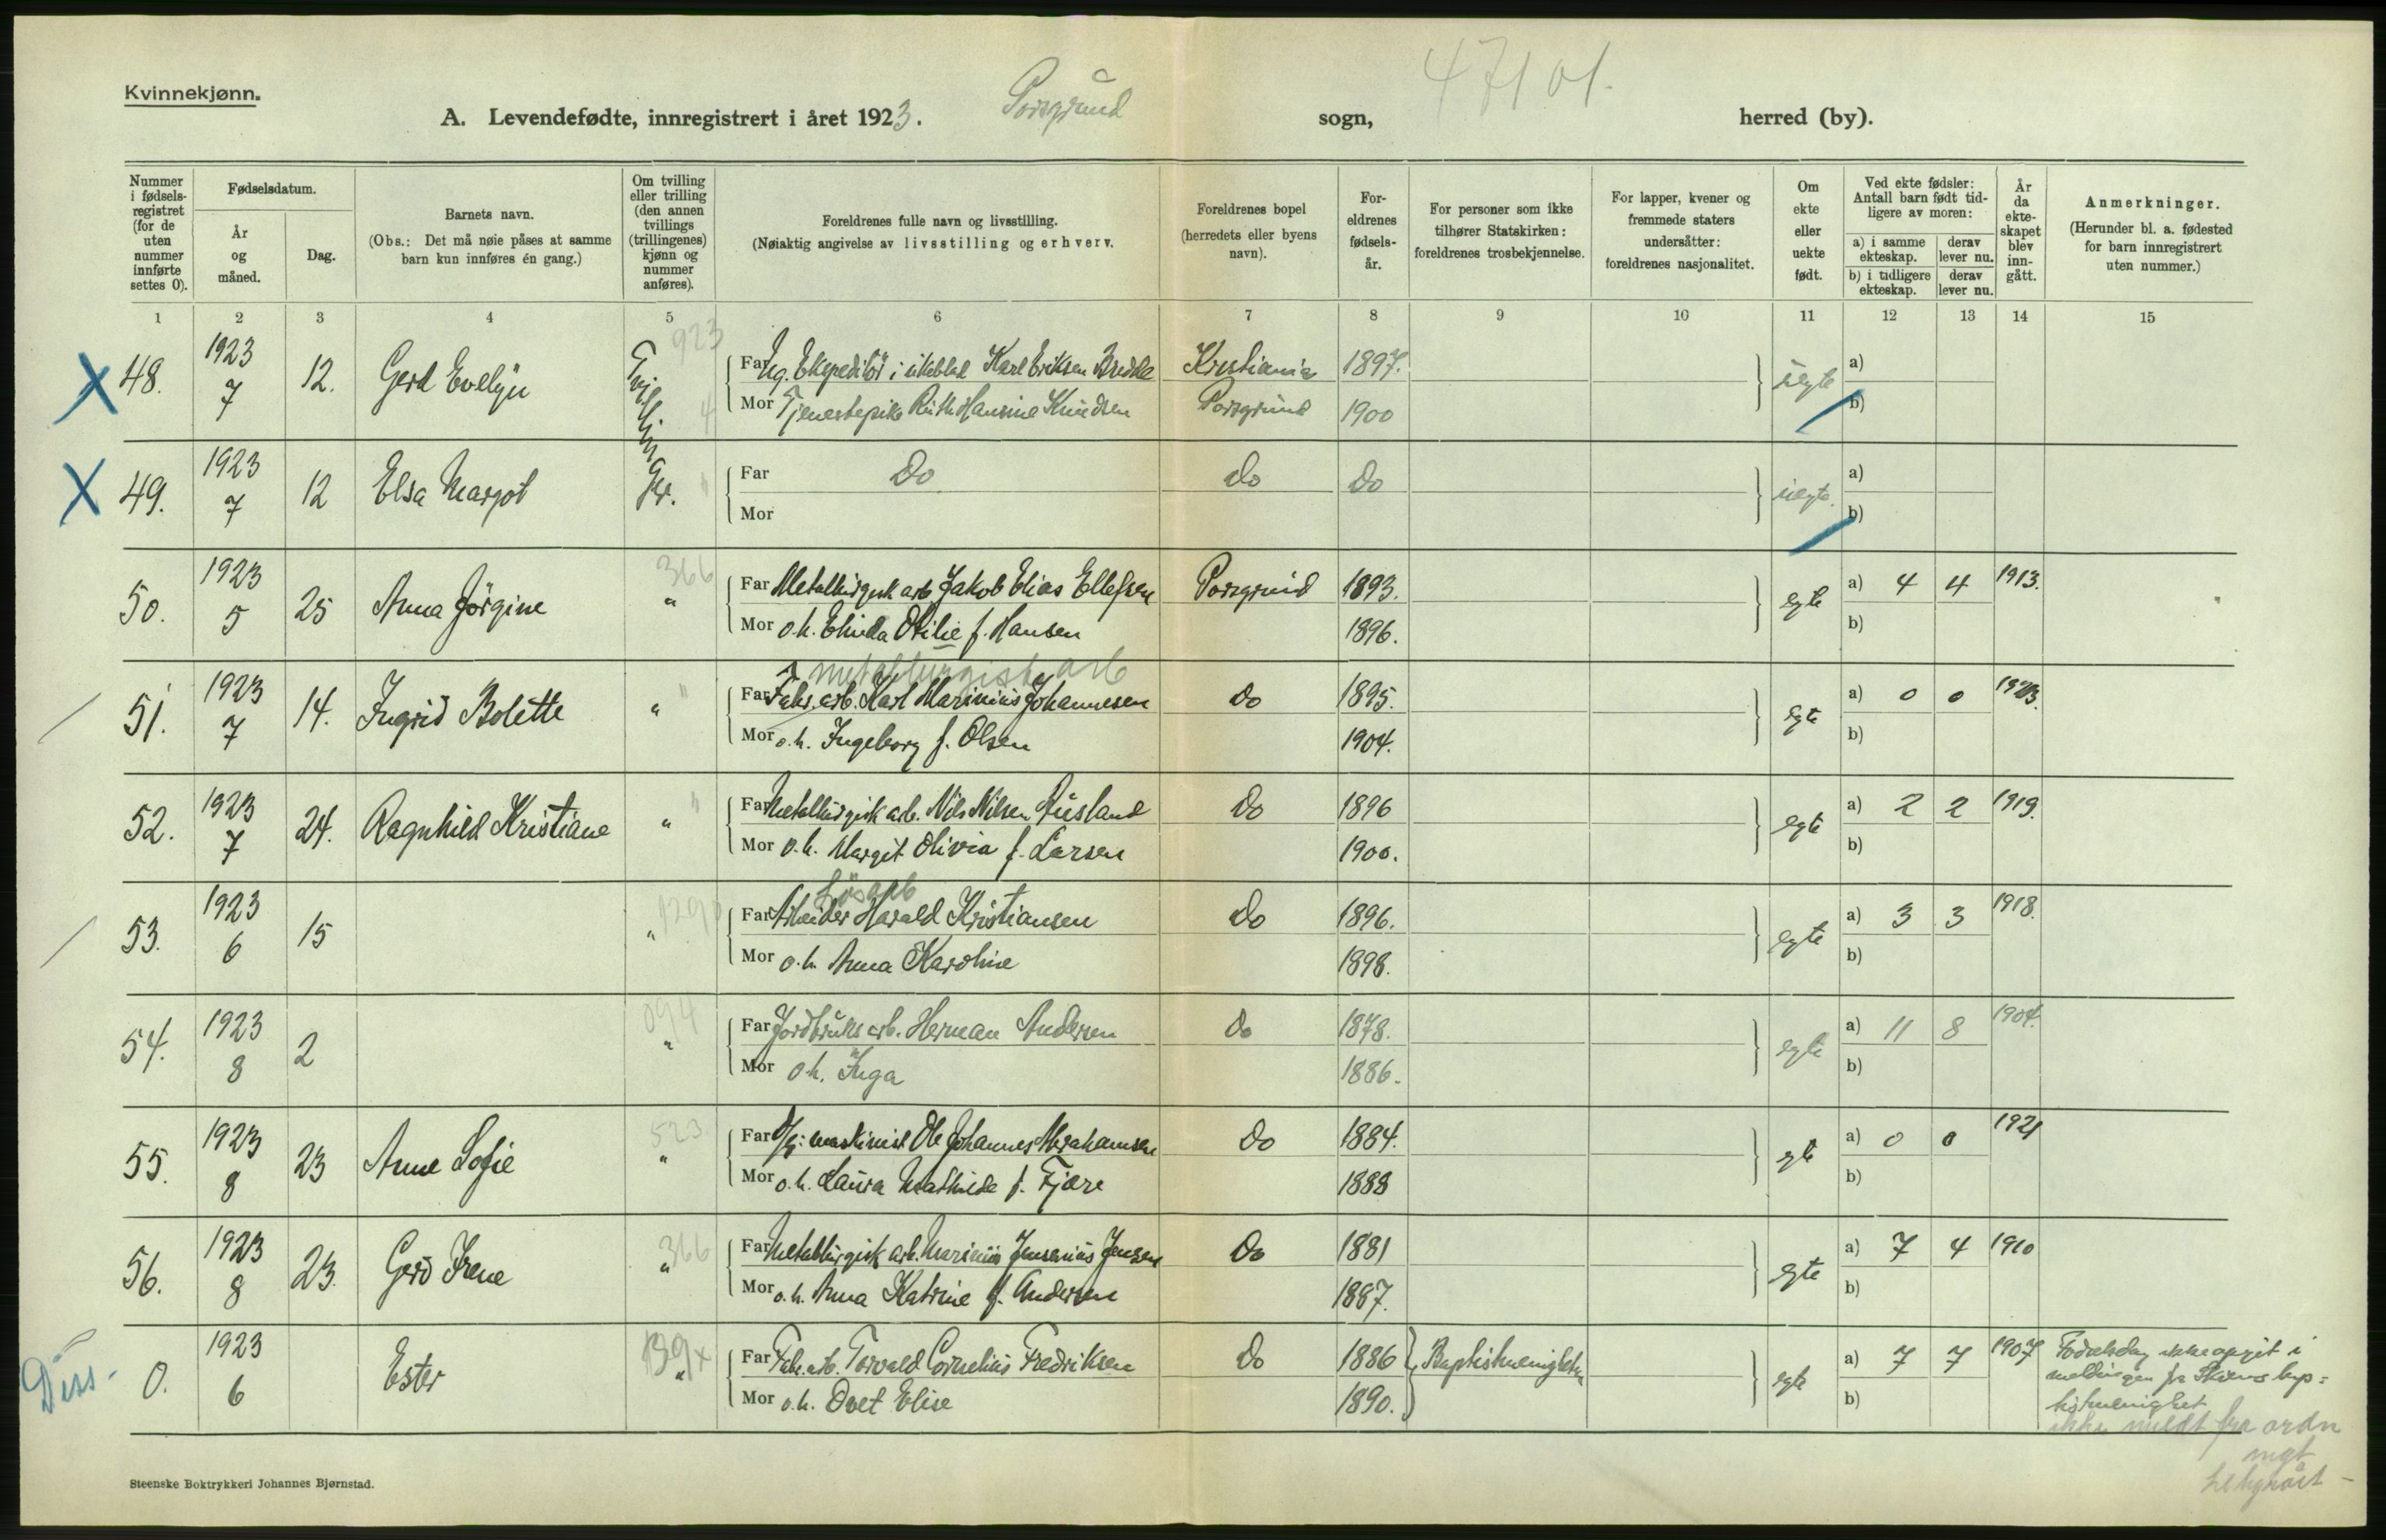 Kvinnekjønn.
A. Levendefødte, innregistrert i året 1923. Porsgrund sogn, herred (by).
Nummer i fødsels-registret (for de uten nummer innførte settes 0).
Fødselsdatum.
År og måned.
Dag.
Barnets navn.
(Obs.: Det må nøie påses at samme barn kun innføres én gang.)
Om tvilling eller trilling (den annen tvillings (trillingenes) kjønn og nummer anføres).
Foreldrenes fulle navn og livsstilling.
(Nøiaktig angivelse av livsstilling og erhverv.
Foreldrenes bopel (herredets eller byens navn).
For-eldrenes fødsels-år.
For personer som ikke tilhører Statskirken: foreldrenes trosbekjennelse.
For lapper, kvener og fremmede staters undersåtter: foreldrenes nasjonalitet.
Om ekte eller uekte født.
Ved ekte fødsler: Antall barn født tid-ligere av moren:
a) i samme ekteskap. derav lever nu.
b) i tidligere ekteskap. derav lever nu.
År da ekte-skapet blev inn-gått.
Anmerkninger.
(Herunder bl. a. fødested for barn innregistrert uten nummer.)
1 2 3 4 5 6 7 8 9 10 11 12 13 14 15
923
X 48. 1923 7 12. Gerd Evelyn Tvillinger. Far Ug. Karl Eriksen Kristiania 1897. uegte a)
Mor Tjenestepike Ruth Hansine Knudsen Porsgrund 1900 b)
X 49. 1923 7 12 Elsa Margot Far Do do Do uegte a)
Mor b)
366
50. 1923 5 25 Anna Jörgine " Far Metallurgisk arb. Jakob Elias Ellefsen Porsgrund 1893. egte a) 4 4 1913.
Mor o.h. Otilie f. Hansen 1896. b)
metallurgisk arb
51. 1923 7 14. Ingrid Bolette " Far Fabr. arb. Karl Marinius Johannesen Do 1895. egte a) 0 0 1923.
Mor o.h. Ingeborg f. Olsen 1904. b)
52. 1923 7 24. Ragnhild Kristiane " Far Metallurgisk arb. Nils Nilsen Do 1896 egte a) 2 2 1919.
Mor o.h. Margit Olivia f. Larsen 1900. b)
Lösarb
53. 1923 6 15 " Far Arbeider Harald Kristiansen Do 1896. egte a) 3 3 1918.
Mor o.h. Anna Karoline 1898. b)
094
54. 1923 8 2 " Far Jordbruks arb. Herman Andersen Do 1878. egte a) 11 8 1904.
Mor o.h. Inga 1886. b)
523
55. 1923 8 23 Anne Sofie " Far maskinist Ole Johannes Abrahamsen Do 1884. egte a) 0 0 1921
Mor o.h. Laura Mathilde f. Fjære 1888 b)
366
56. 1923 8 23. Gerd Irene " Far Metallurgisk arb. Marinius Jensenius Jensen Do 1881 egte a) 7 4 1910
Mor o.h. Anna Katrine f. Andersen 1887. b)
Diss- 0. 1923 6 Ester " Far Fabr. arb. Torvald Cornelius Fredriksen Do 1886 Baptistmenigheten egte a) 7 7 1907 Födselsdag ikke opgit i
Mor o.h. Elise 1890. b) meldingen fra Skiens bap=
tistmenighet
ikke meldt fra ordn
Steenske Boktrykkeri Johannes Bjørnstad.